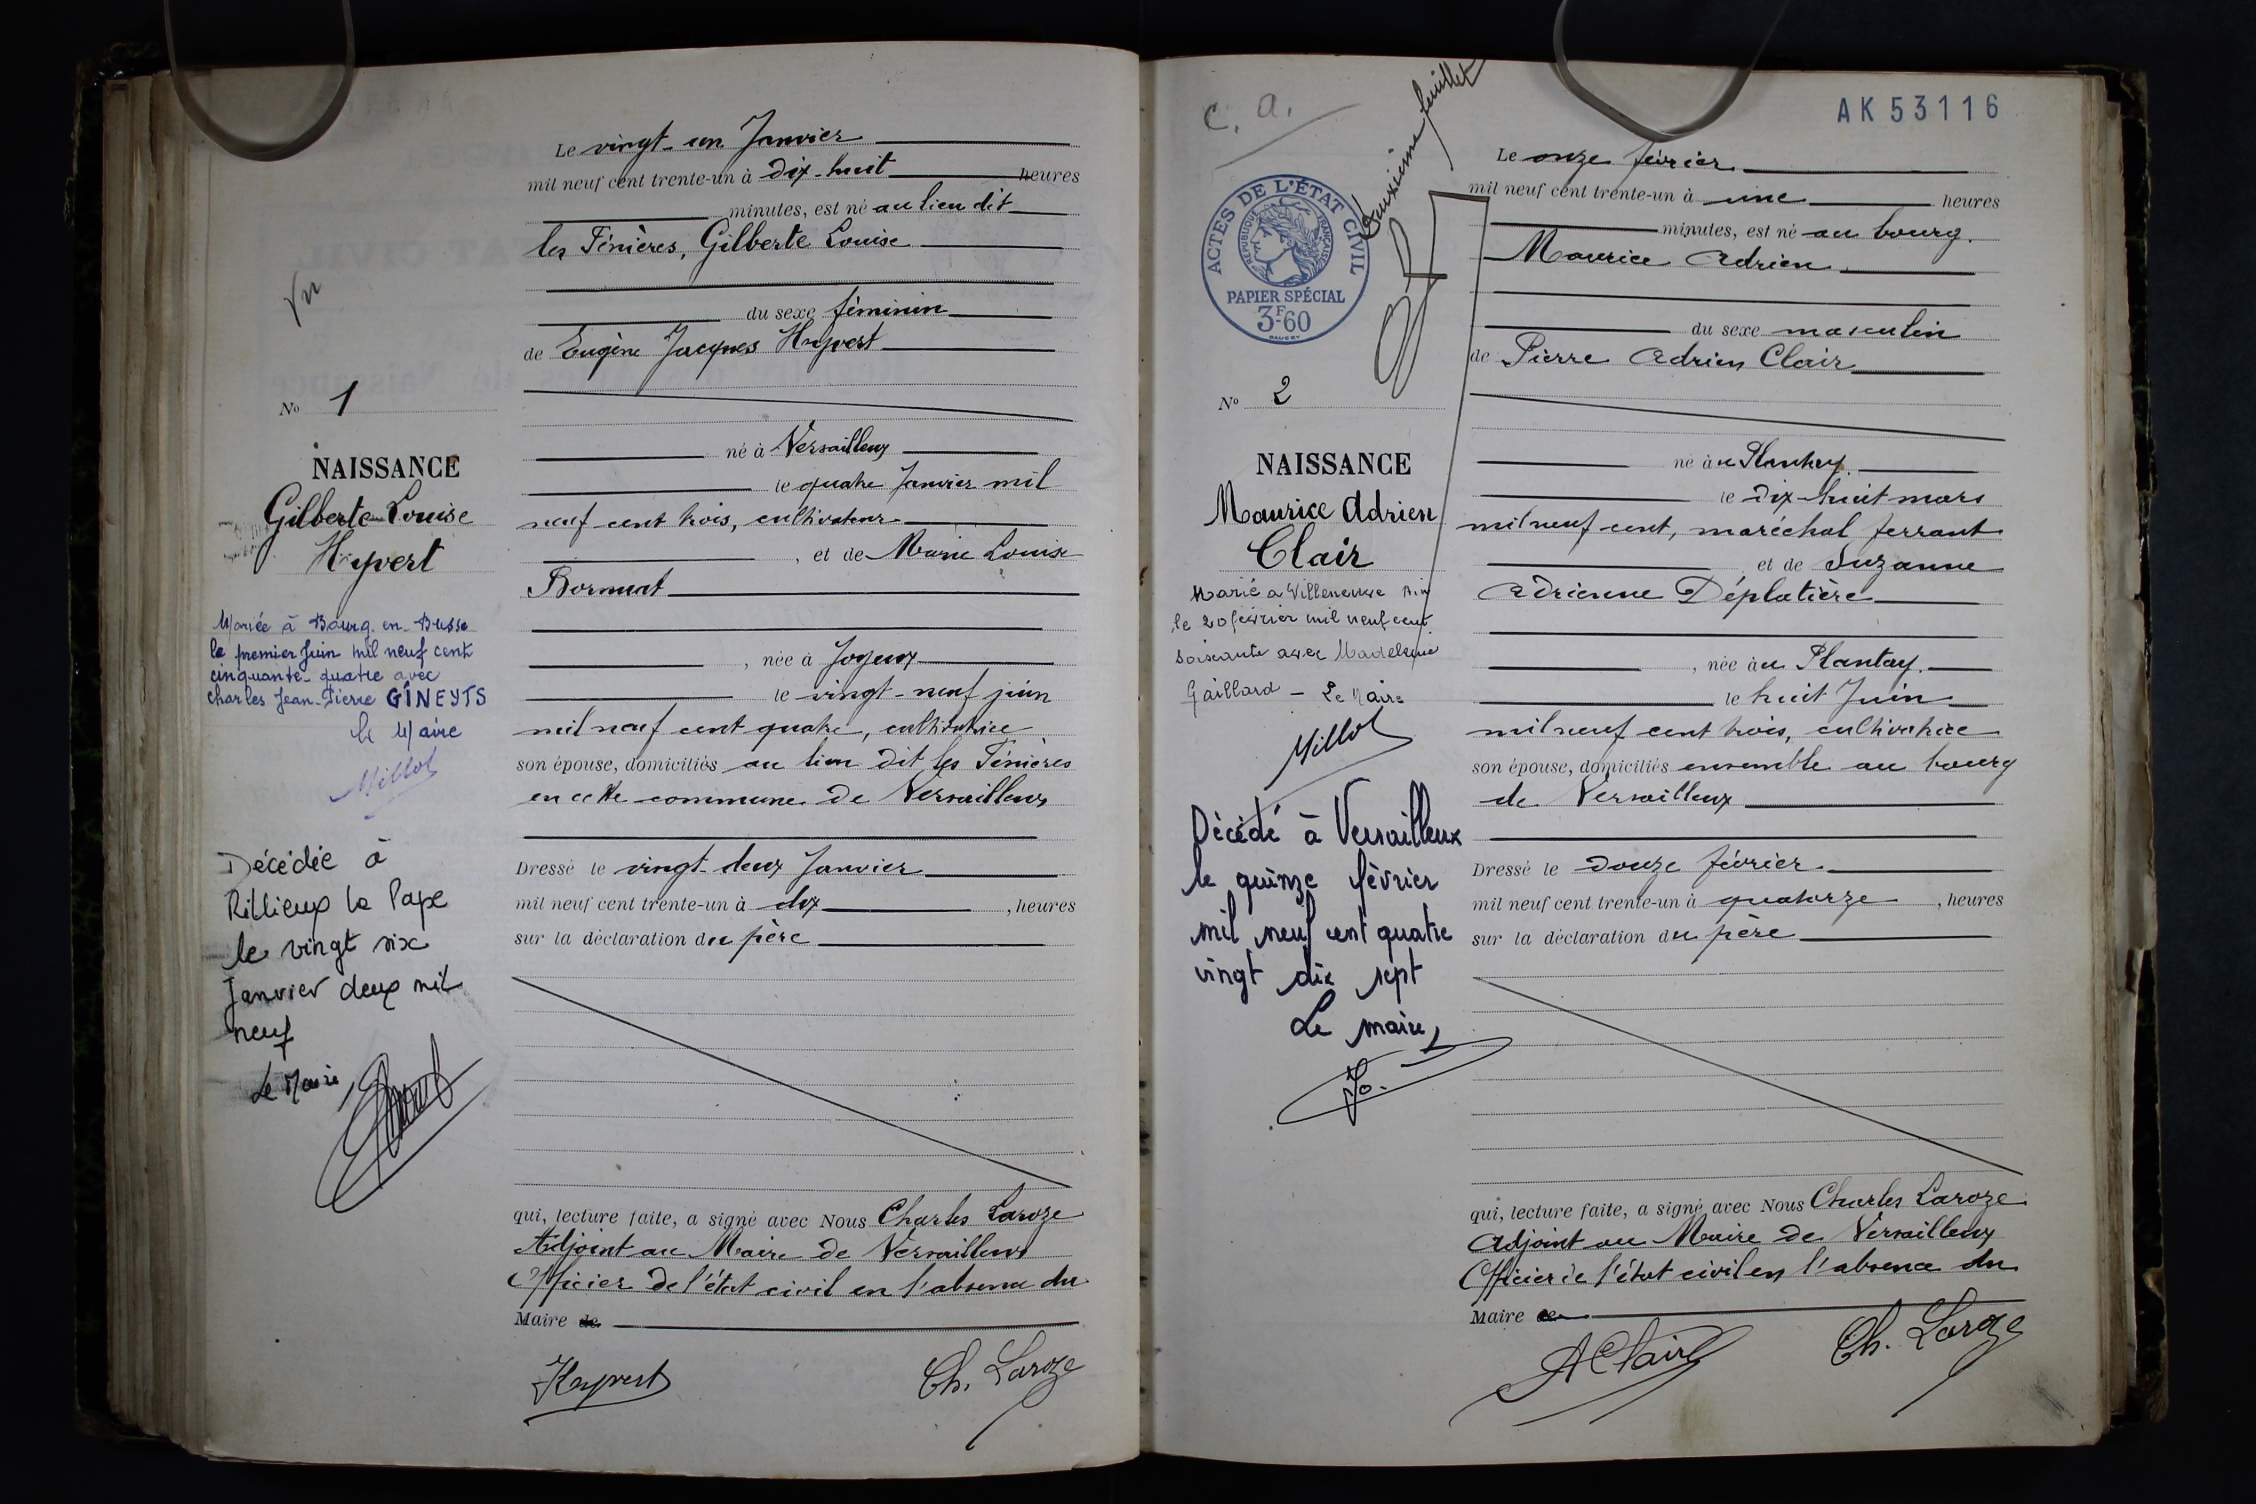 Le vingt-un Janvier
mil neuf cent trente-un à dix-huit heures
minutes, est né au lieu dit
les Fénières, Gilberte Louise
du sexe féminin
de Eugène Jacques Hyvert
né à Versailleux
le quatre Janvier mil
neuf cent trois, cultivateur
, et de Marie Louise
née à Joyeux
le vingt-neuf juin
mil neuf cent quatre, cultivatrice
son épouse, domiciliés au lieu dit les Fénières
en cette commune de Versailleux
Dressé le vingt-deux Janvier
mil neuf cent trente-un à dix , heures
sur la déclaration du père
qui, lecture faite, a signé avec Nous Charles Laroze
Adjoint au Maire de Versailleux
Officier de l'état civil en l'absence du
Maire de
Hyvert
Ch. Laroze
Vu
No 1
NAISSANCE
Gilberte Louise
Hyvert
Mariée à Bourg-en-Bresse
le premier Juin mil neuf cent
cinquante-quatre avec
Charles Jean-Pierre GINEYTS
le Maire
Millot
Décédée à
Rillieux la Pape
le vingt six
Janvier deux mil
neuf
Le Maire,
C. a.
Deuxième feuillet
AK 53116
ACTES DE L'ÉTAT CIVIL
RÉPUBLIQUE FRANÇAISE
PAPIER SPÉCIAL
3F.60
No 2
NAISSANCE
Maurice Adrien
Clair
Marié à Villeneuve Ain
le 20 février mil neuf cent
soixante avec Madeleine
Gaillard - Le Maire
Millot
Décédé à Versailleux
le quinze février
mil neuf cent quatre
vingt dix sept
Le maire,
Le onze février
mil neuf cent trente-un à une heures
minutes, est né au bourg.
Maurice Adrien
du sexe masculin
de Pierre Adrien Clair
né au Plantay
le dix-huit mars
mil neuf cent, maréchal ferrant
et de Suzanne
Adrienne Déplatière
, née au Plantay
le huit Juin
mil neuf cent trois, cultivatrice
son épouse, domiciliés ensemble au bourg
de Versailleux
Dressé le douze février
mil neuf cent trente-un à quatorze , heures
sur la déclaration du père
qui, lecture faite, a signé avec Nous Charles Laroze
Adjoint au Maire de Versailleux
Officier de l'état civil en l'absence du
Maire de
A Clair
Ch. Laroze